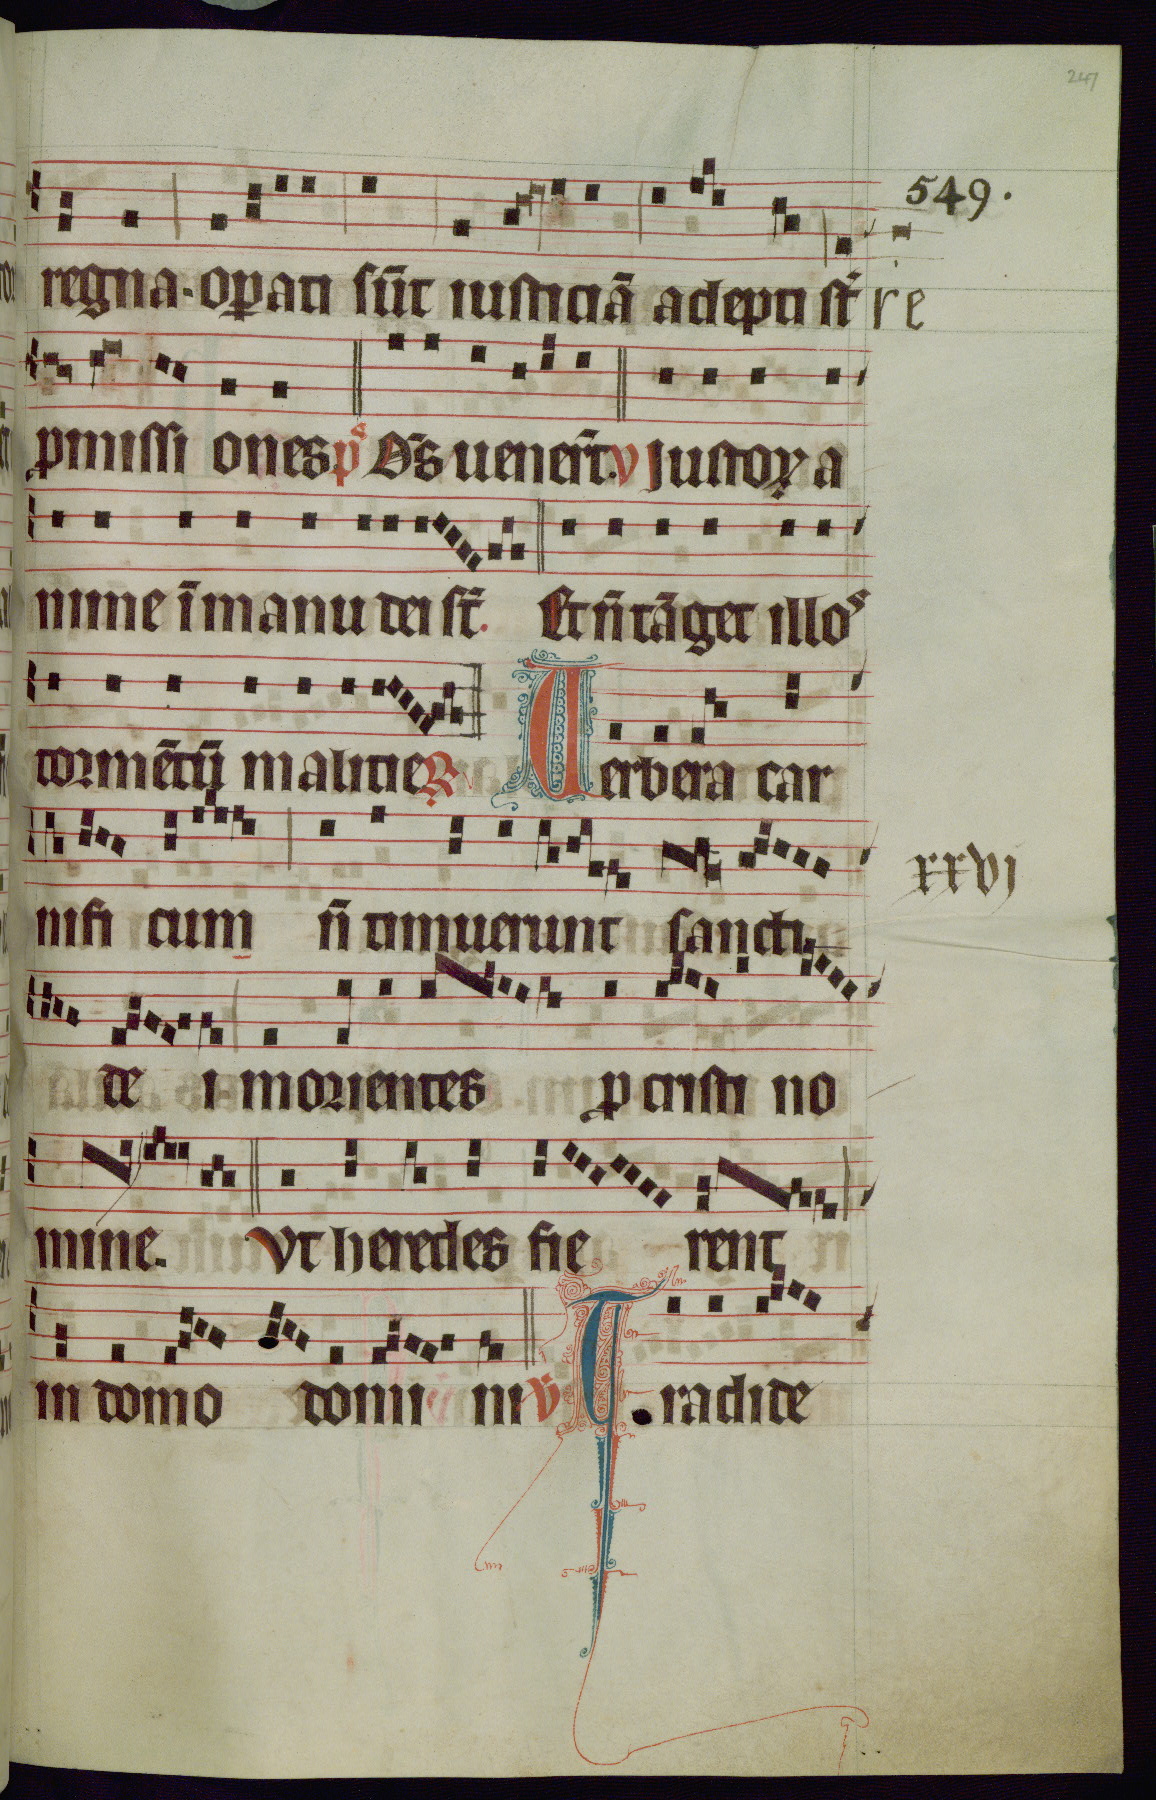 247
549.
regna. oꝑati sūt iusticiā adepti st̄ re
ꝓmissi ones pˢ D̄s uener̄t. v Justoꝝ a
nime ī manu dei st̄. Et n̄ tāget illoˢ
tormētū malitie ℟ Uerbera car
nifi cum n̄ timuerunt sancti
xxvj
de i morientes ꝓ cristi no
mine. Vt heredes fie rent
in domo domi ni v̄ Tradide